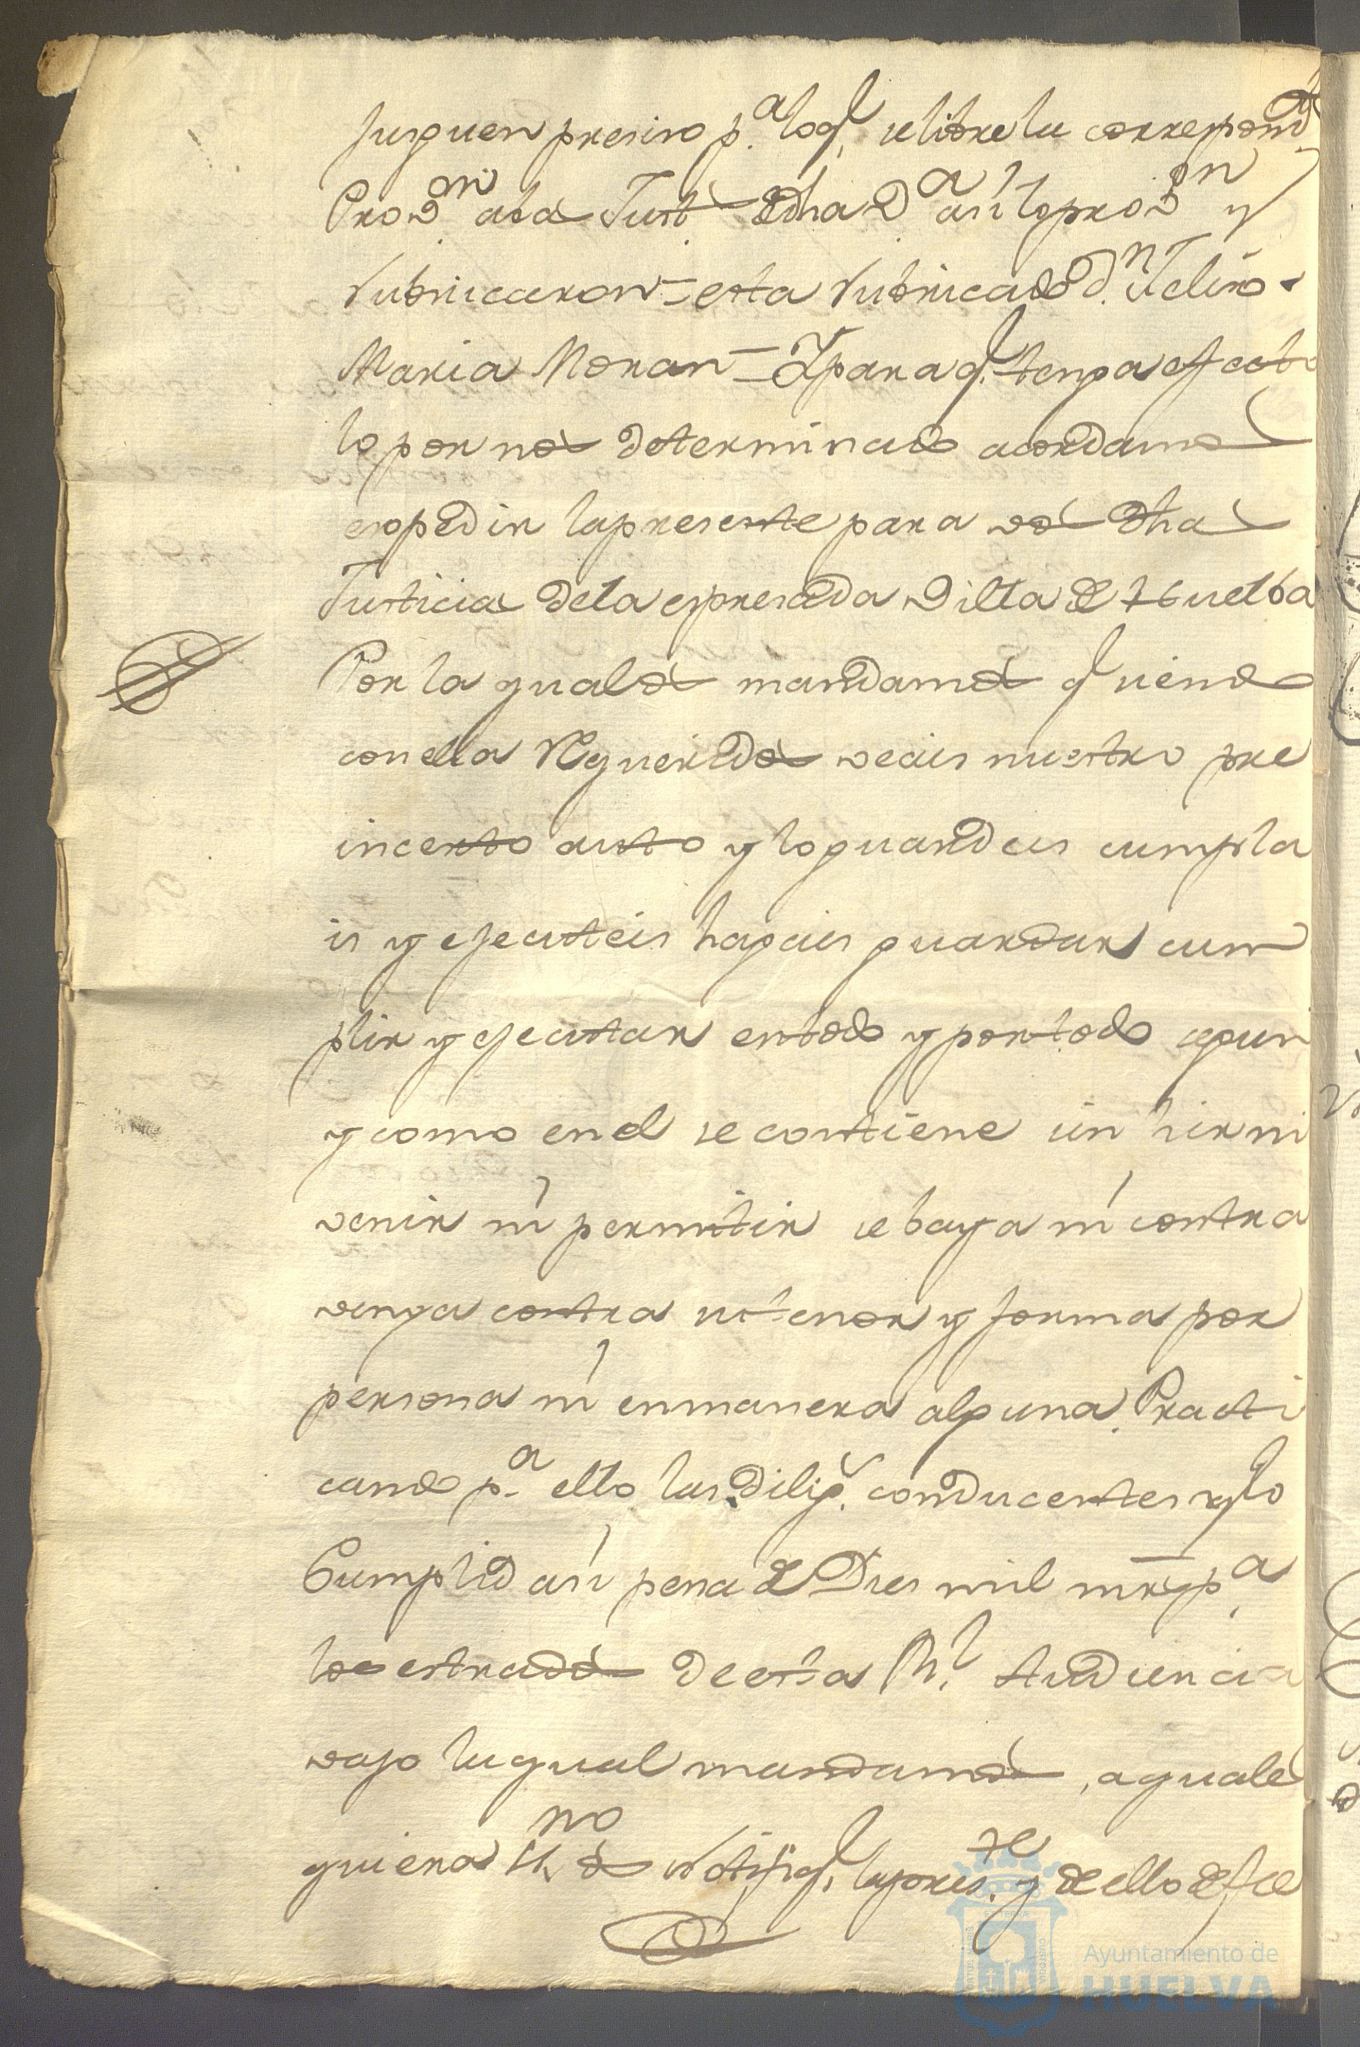 Jusguen presiso p.ª loq.e se libre la correspond.te
Pro.on ala Just.ª de dha V.ª asi lo pro.on y
rubricaron = esta rubricado D.n Isidro
Maria Moran = Y para q.e tenga efecto
lo por nos determinado acordamos
espedir la presente para vos dha
Justicia dela espresada Villa de Huelba
Por la qual os mandamos q.e siendo
con ella requeridos veais nuestro pre
incerto auto y lo guardeis cumpla
is y ejecuteis hagais guardar cum
plir y ejecutar entodo y portodo segun
y como en el se contiene sin hir ni
venir ni permitir se baya ni contra
venga contra su tenor y forma por
persona ni enmanera alguna. Practi
cando p.ª ello las dilig.s conducentes y lo
Cumplid asi pena de Dies mil mrs p.ª
los estrados de esta R.l Audiencia
vajo la qual mandamos, a quales
quiera SS.no os Notifiq.e la pres.te y de ello de fee
Ayuntamiento de
HUELVA